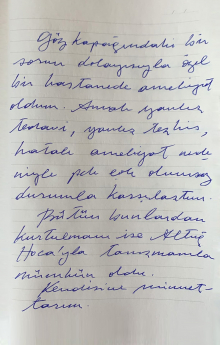 Göz kapağındaki bir
sorun dolayısıyla özel
bir hastanede ameliyat
oldum. Ancak yanlış
tedavi, yanlış teşhis,
hatalı ameliyat nede
niyle pek çok olumsuz
durumla karşılaştım.
Bütün bunlardan
kurtulmam ise Altuğ
Hoca'yla tanışmamla
mümkün oldu.
Kendisine minnet-
tarım.